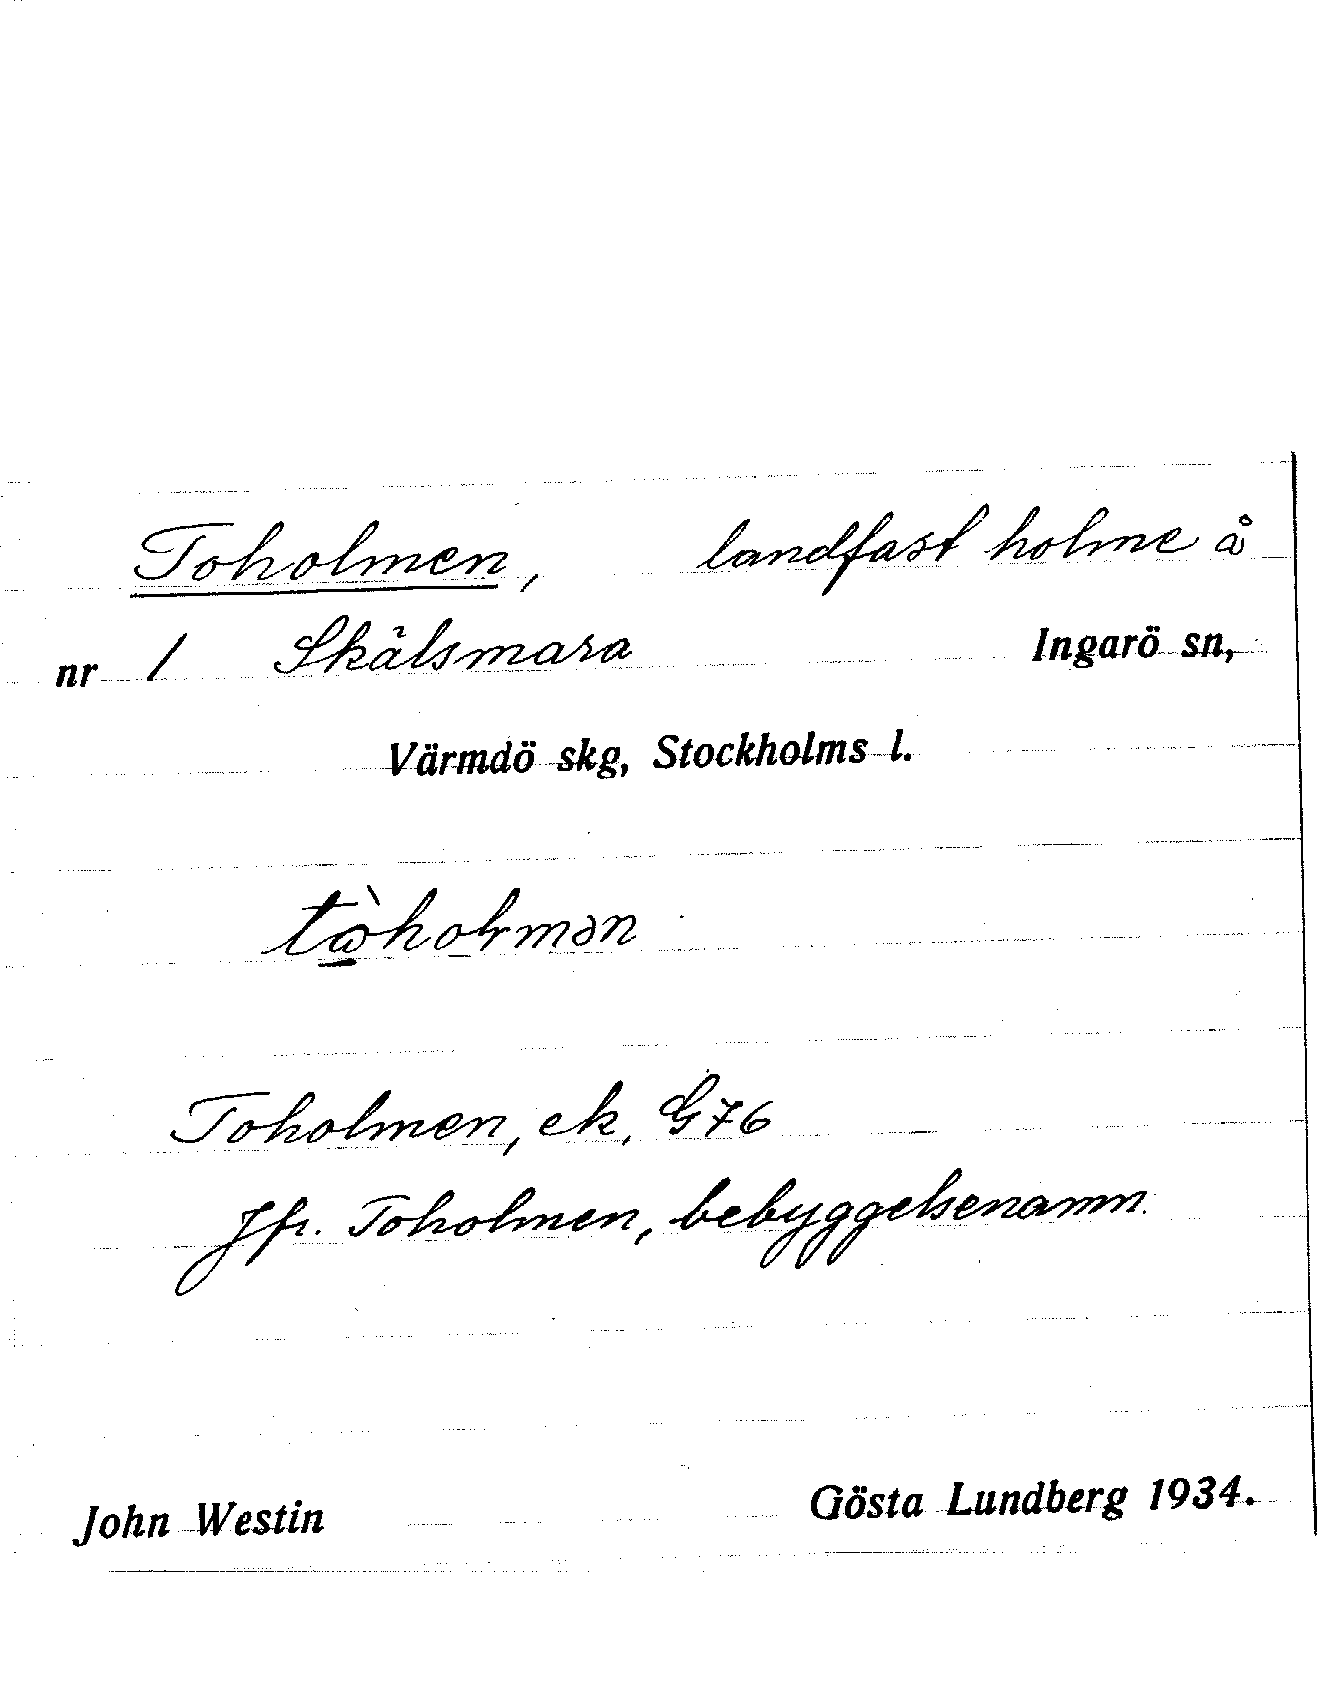 Toholmen, landfast holme å
nr 1 Skälsmara Ingarö sn,
Värmdö skg, Stockholms l.
Toholmen, ek, G76
Jfr. Toholmen, bebyggelsenamn.
John Westin Gösta Lundberg 1934.